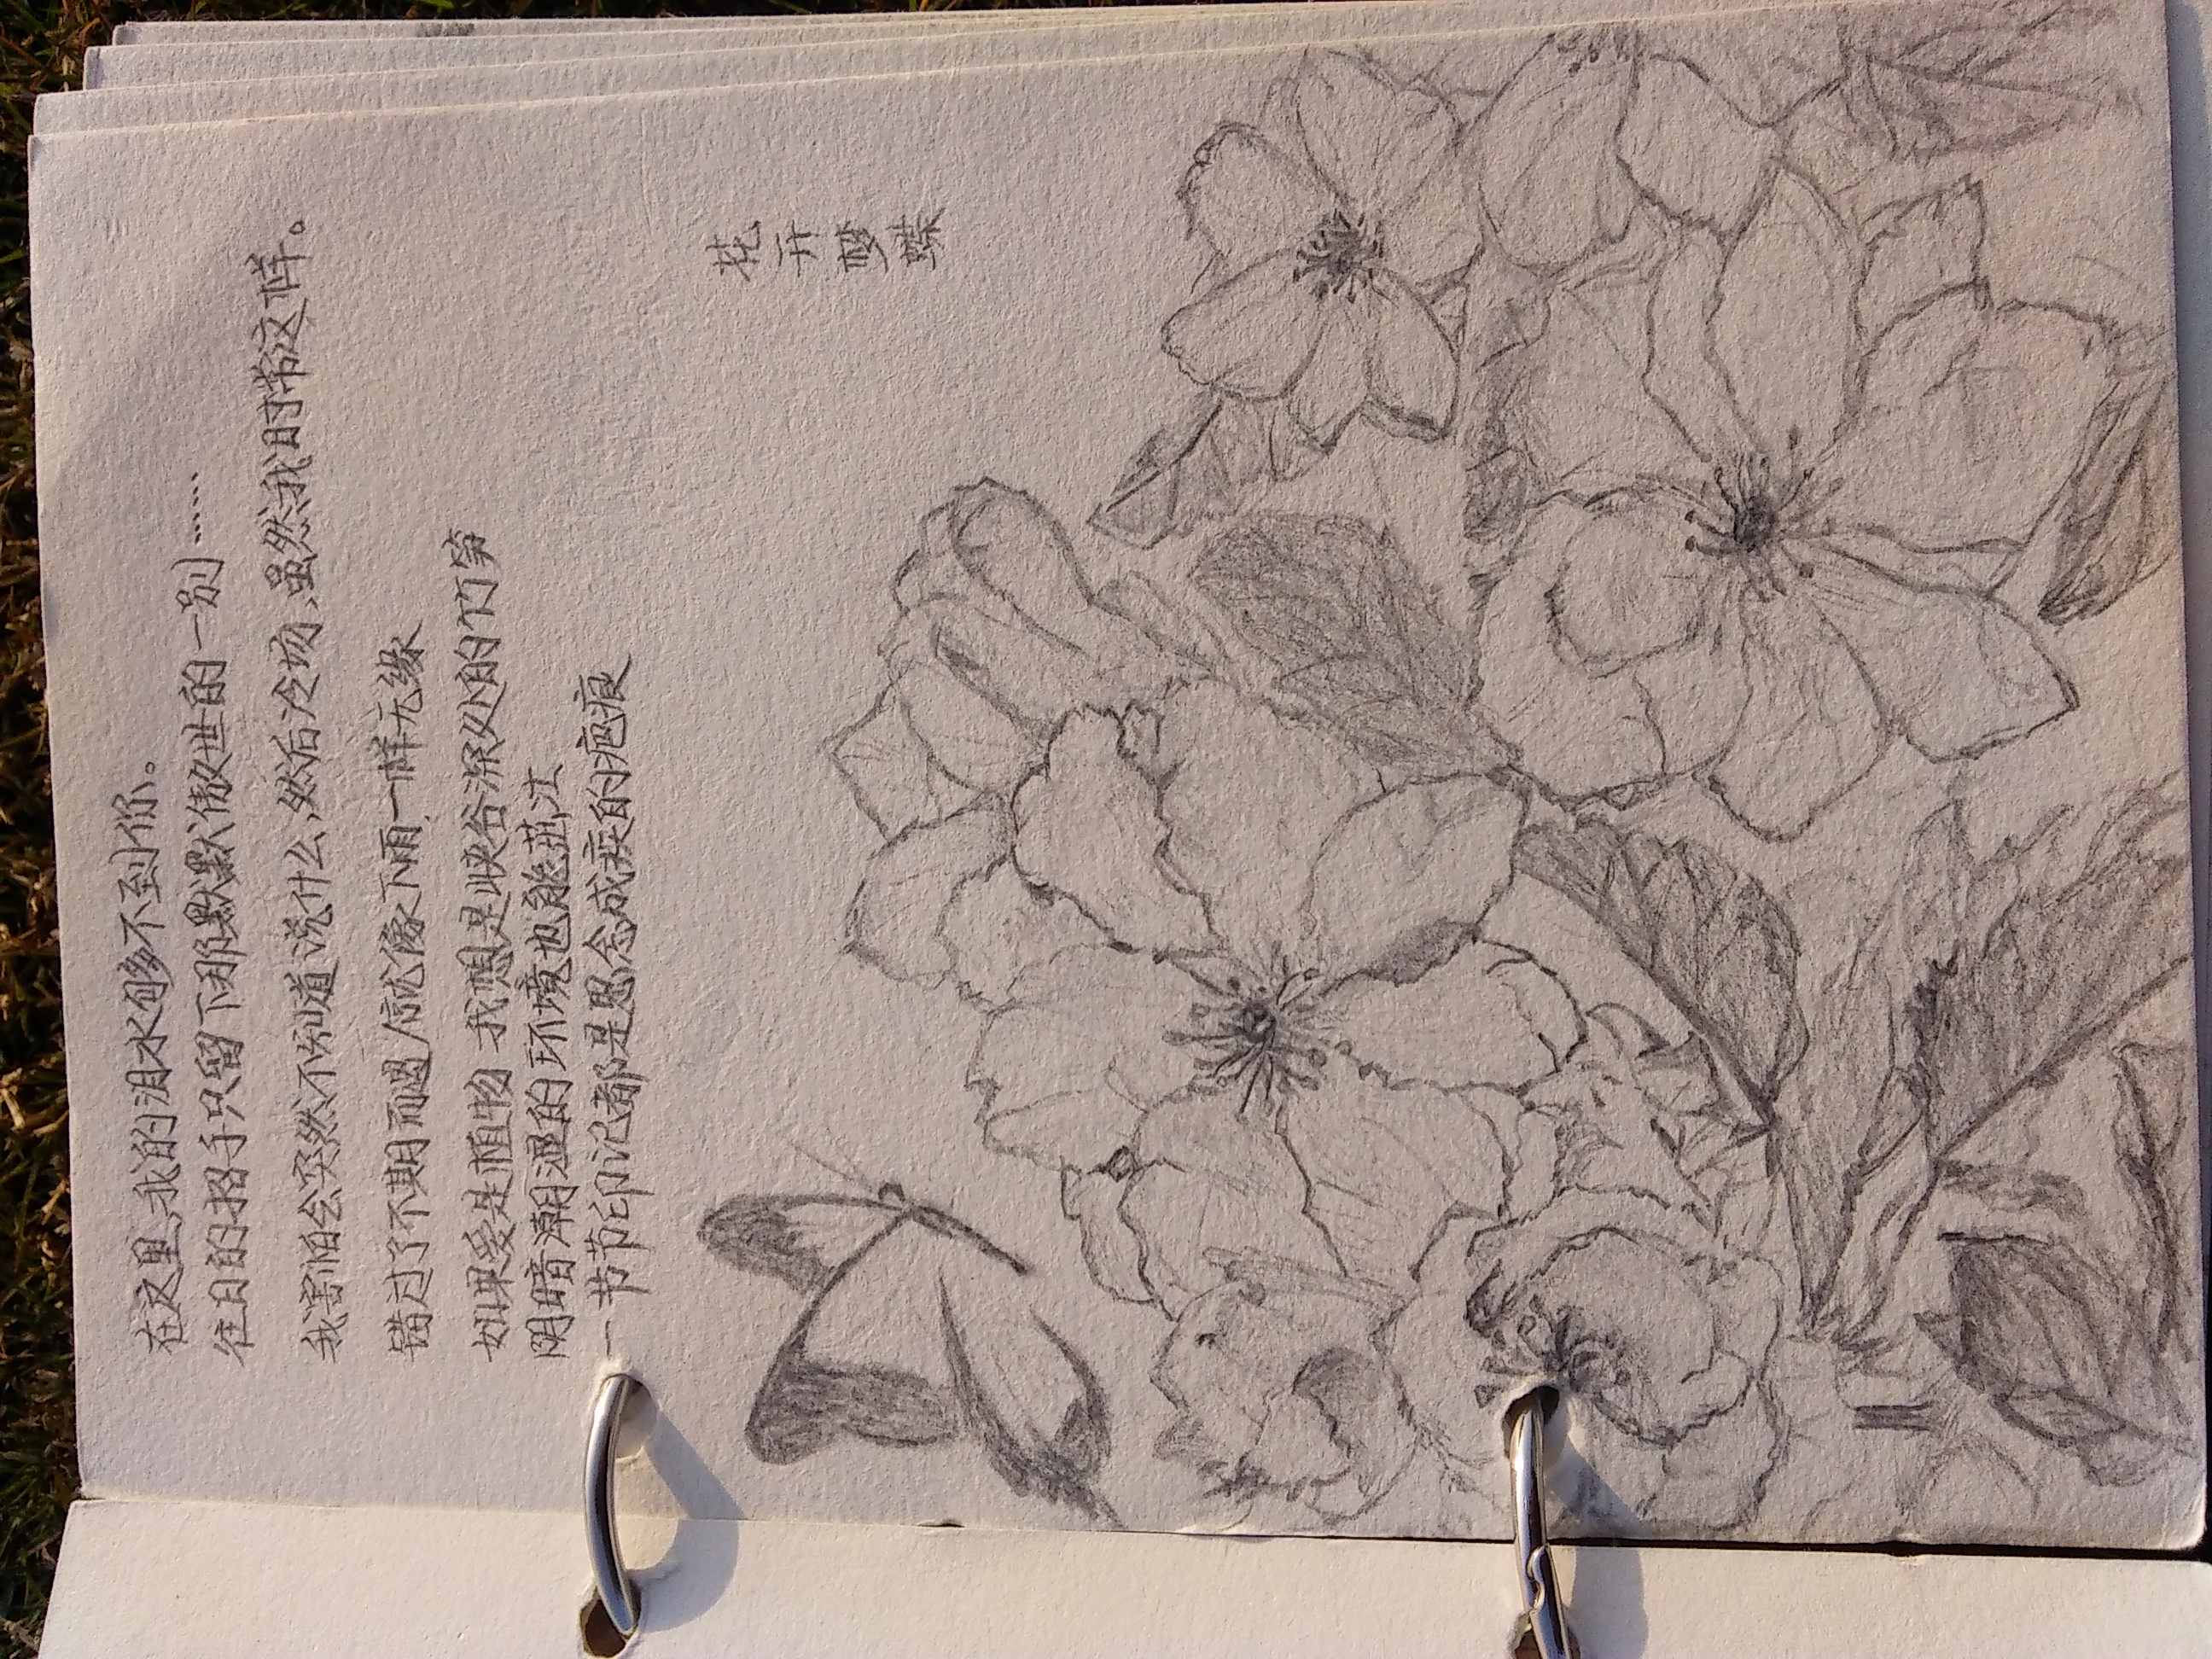 在这里,我的泪水够不到你。
往日的招手只留下那默默傲世的一别……
我害怕会突然不知道说什么,然后冷场,虽然我时常这样。
错过了不期而遇/就像下雨一样无缘
如果爱是植物 我想是峡谷深处的竹笋
阴暗潮湿的环境也能茁壮
一节节印记都是思念成疾的疤痕
花开梦蝶